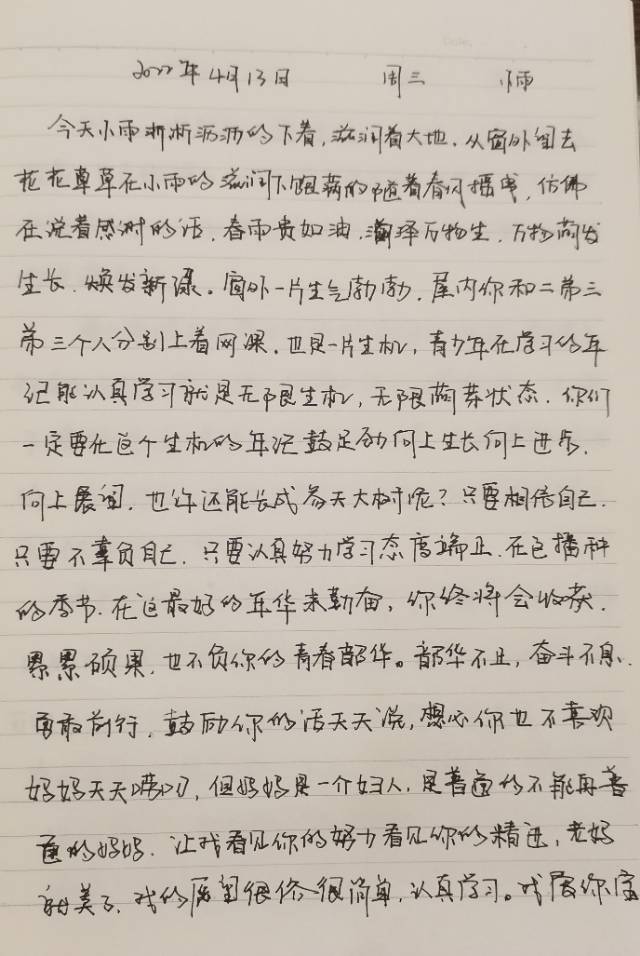 2022年4月13日 周三 小雨
今天小雨淅淅沥沥的下着，滋润着大地，从窗外望去
花花草草在小雨的滋润下跟着的随着春风摇曳，仿佛
在说着感谢的话，春雨贵如油，润泽万物生，万物萌发
生长，焕发新绿。窗外一片生气勃勃，屋内你和二弟三
弟三个人分别上着网课，也是一片生机，青少年在学习的年
纪能认真学习就是无限生机，无限萌芽状态，你们
一定要在这个生机的年纪鼓足劲向上生长向上进步，
向上展望，也许还能长成参天大树呢？只要相信自己，
只要不辜负自己，只要认真努力学习态度端正，在这播种
的季节，在这最好的年华来勤奋，你终将会收获，
累累硕果，也不负你的青春韶华。韶华不止，奋斗不息，
勇敢前行，鼓励你的话天天说，想必你也不喜欢
妈妈天天唠叨，但妈妈是一个妇人，是普通的不能再普
通的妈妈，让我看见你的努力看见你的精进，老妈
就美了，我的愿望很很简单，认真学习。我愿你